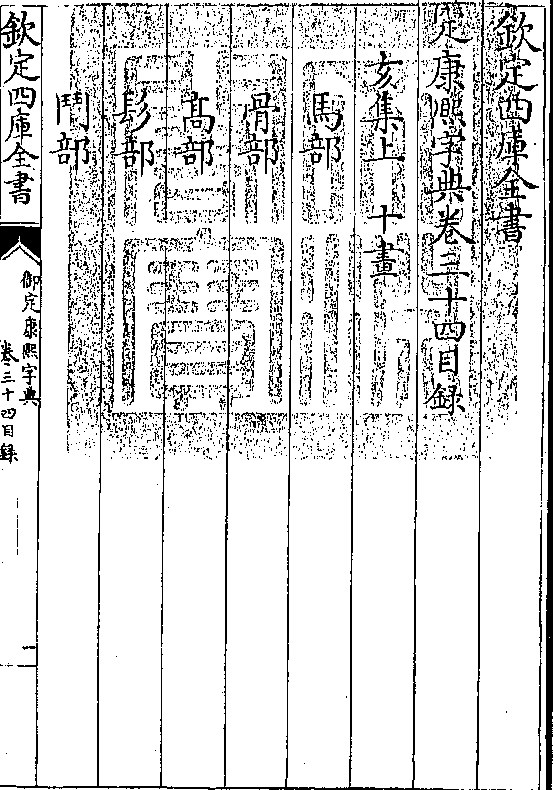 欽定四庫全書
御定康熙字典卷三十四目錄
亥集上 十畫
馬部
骨部
高部
髟部
鬥部
欽定四庫全書
御定康熙字典
卷三十四目錄
一